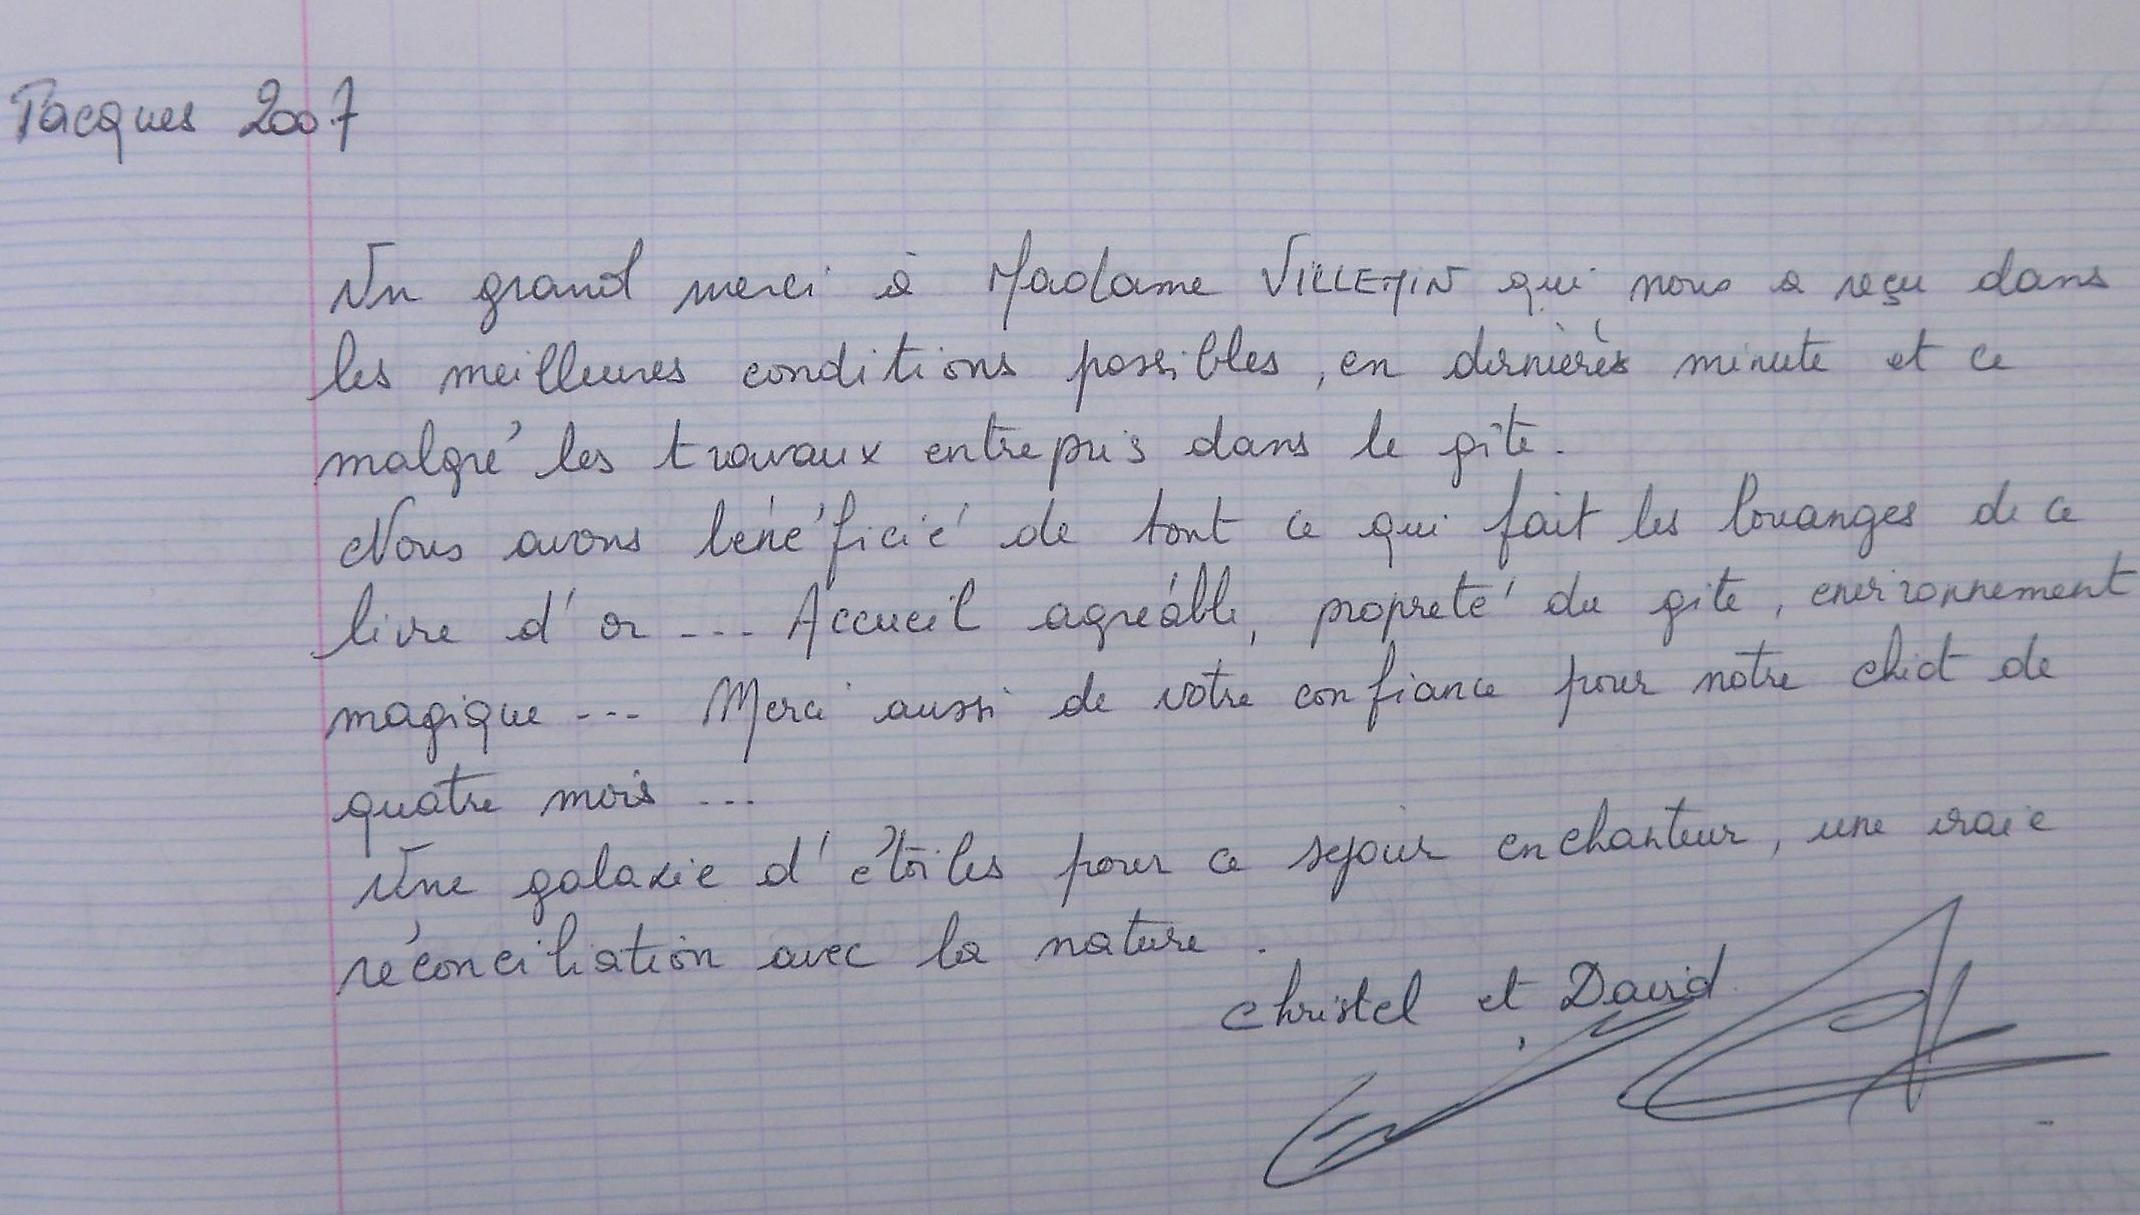 Pacques 2007
Un grand merci à Madame VILLEMIN qui nous a reçu dans
les meilleures conditions possibles, en dernière minute et ce
malgré les travaux entrepris dans le gîte.
Nous avons bénéficié de tout ce qui fait les louanges de ce
livre d'or --- Accueil agréable, propreté du gite, environnement
magique --- Merci aussi de votre confiance pour notre chiot de
quatre mois ---
Une galaxie d'étoiles pour ce sejour enchanteur, une vraie
réconciliation avec la nature.
Christel et David